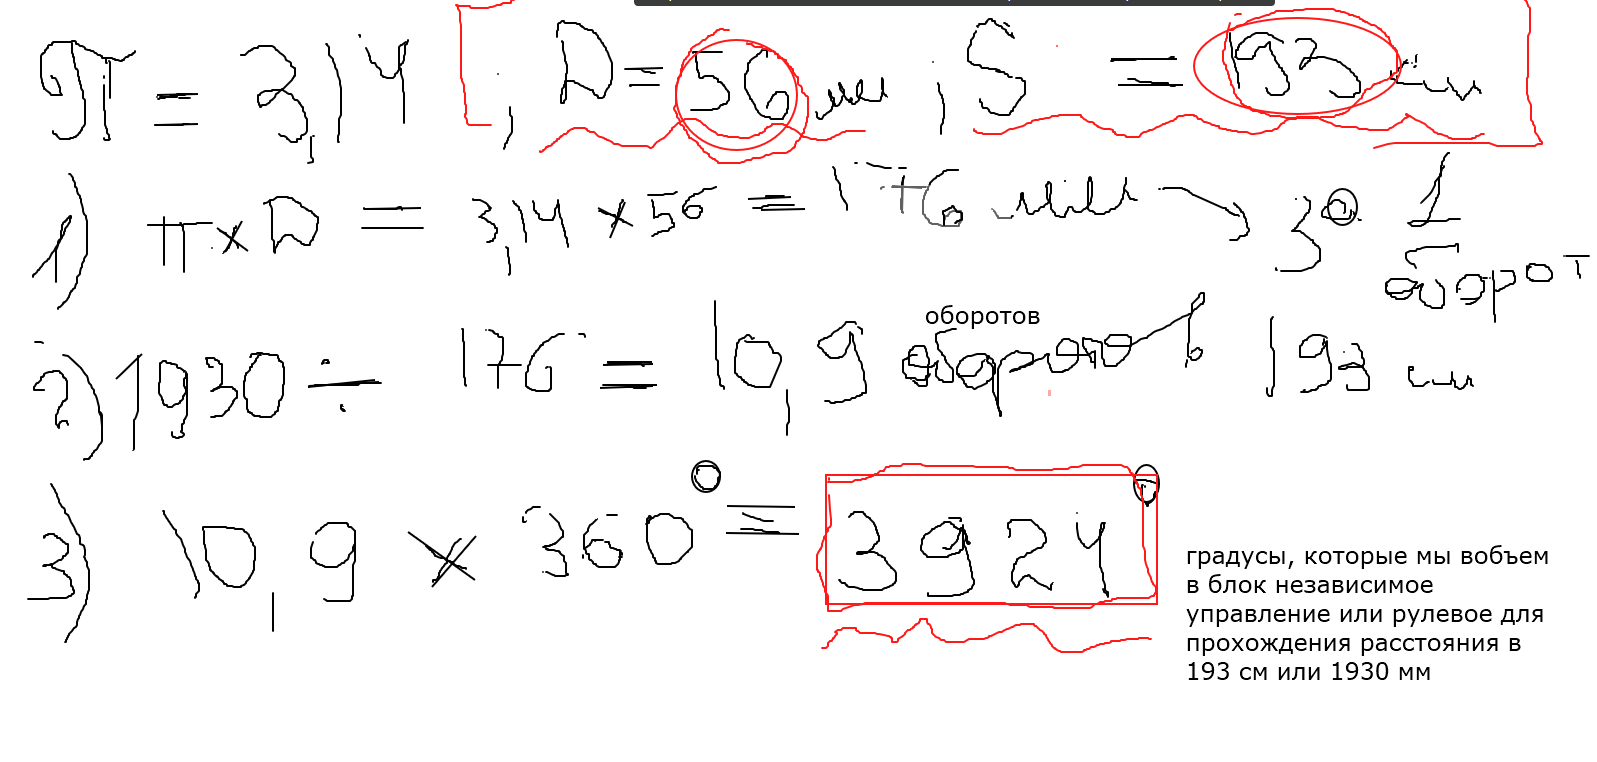 π = 3,14 , D = 56 мм , S = 193 см
1) π × D = 3,14 × 56 = 176 мм → 1 оборот
2) 1930 ÷ 176 = 10,9 оборотов в 193 см
оборотов
3) 10,9 × 360° = 3924°
градусы, которые мы вобъем
в блок независимое
управление или рулевое для
прохождения расстояния в
193 см или 1930 мм